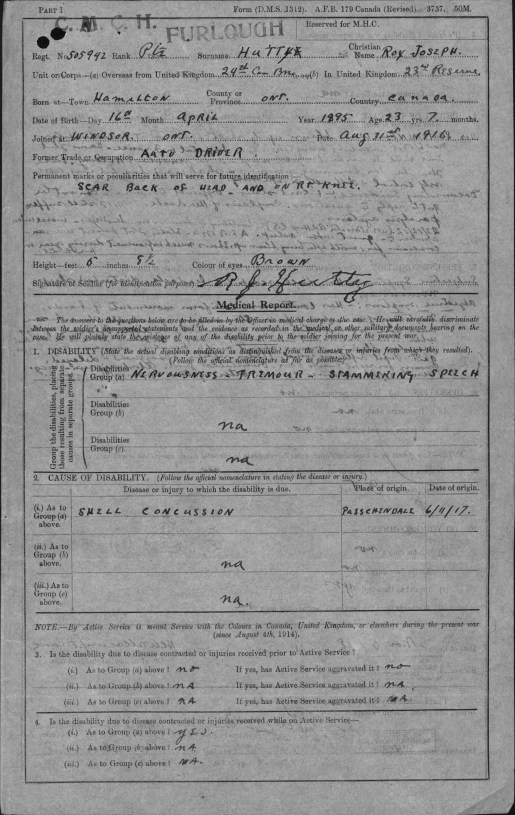 PART I Form (D.M.S. 1312). A.F.B. 179 Canada (Revised). 3737. 50M.
C. M. C. H. FURLOUGH Reserved for M.H.C.
Regt. No 505942 Rank Pte Surname HUTTYE Christian Name ROY JOSEPH.
Unit or Corps—(a) Overseas from United Kingdom 24th Can (b) In United Kingdom 23rd Reserve
Born at—Town HAMILTON County or Province ONT. Country CANADA.
Date of Birth—Day 16th Month April Year 1895 Age 23 yrs. 7 months.
Joined at WINDSOR. ONT. Date Aug 31st 1916
Former Trade or Occupation AUTO DRIVER.
Permanent marks or peculiarities that will serve for future identification
SCAR BACK OF HEAD AND ON RT KNEE.
Height—feet 5 inches 5½ Colour of eyes BROWN
Signature of Soldier (for identification purposes)
Medical Report.
NOTE.—The answers to the questions below are to be filled in by the Officer in medical charge of the case. He will carefully discriminate
between the soldier's unsupported statements and the evidence as recorded in the medical or other military documents bearing on the
case. He will plainly state the evidence of any of the disability prior to the soldier joining for the present war.
1. DISABILITY (State the actual disabling conditions as distinguished from the diseases or injuries from which they resulted).
(Follow the official nomenclature as far as possible).
Group the disabilities, placing those resulting from separate causes in separate groups.
Disabilities Group (a) NERVOUSNESS - TREMOUR - STAMMERING SPEECH
Disabilities Group (b) na
Disabilities Group (c). na
2. CAUSE OF DISABILITY. (Follow the official nomenclature in stating the disease or injury.)
Disease or injury to which the disability is due. Place of origin Date of origin.
(i.) As to Group (a) above. SHELL CONCUSSION PASSCHENDALE 6/11/17.
(ii.) As to Group (b) above. na
(iii.) As to Group (c) above. na.
NOTE.—By Active Service is meant Service with the Colours in Canada, United Kingdom, or elsewhere during the present war
(since August 4th, 1914).
3. Is the disability due to disease contracted or injuries received prior to Active Service?
(i.) As to Group (a) above? no If yes, has Active Service aggravated it? no
(ii.) As to Group (b) above? nA If yes, has Active Service aggravated it? nA.
(iii.) As to Group (c) above? nA If yes, has Active Service aggravated it? nA.
4. Is the disability due to disease contracted or injuries received while on Active Service—
(i.) As to Group (a) above? yes.
(ii.) As to Group (b) above? nA
(iii.) As to Group (c) above? nA.